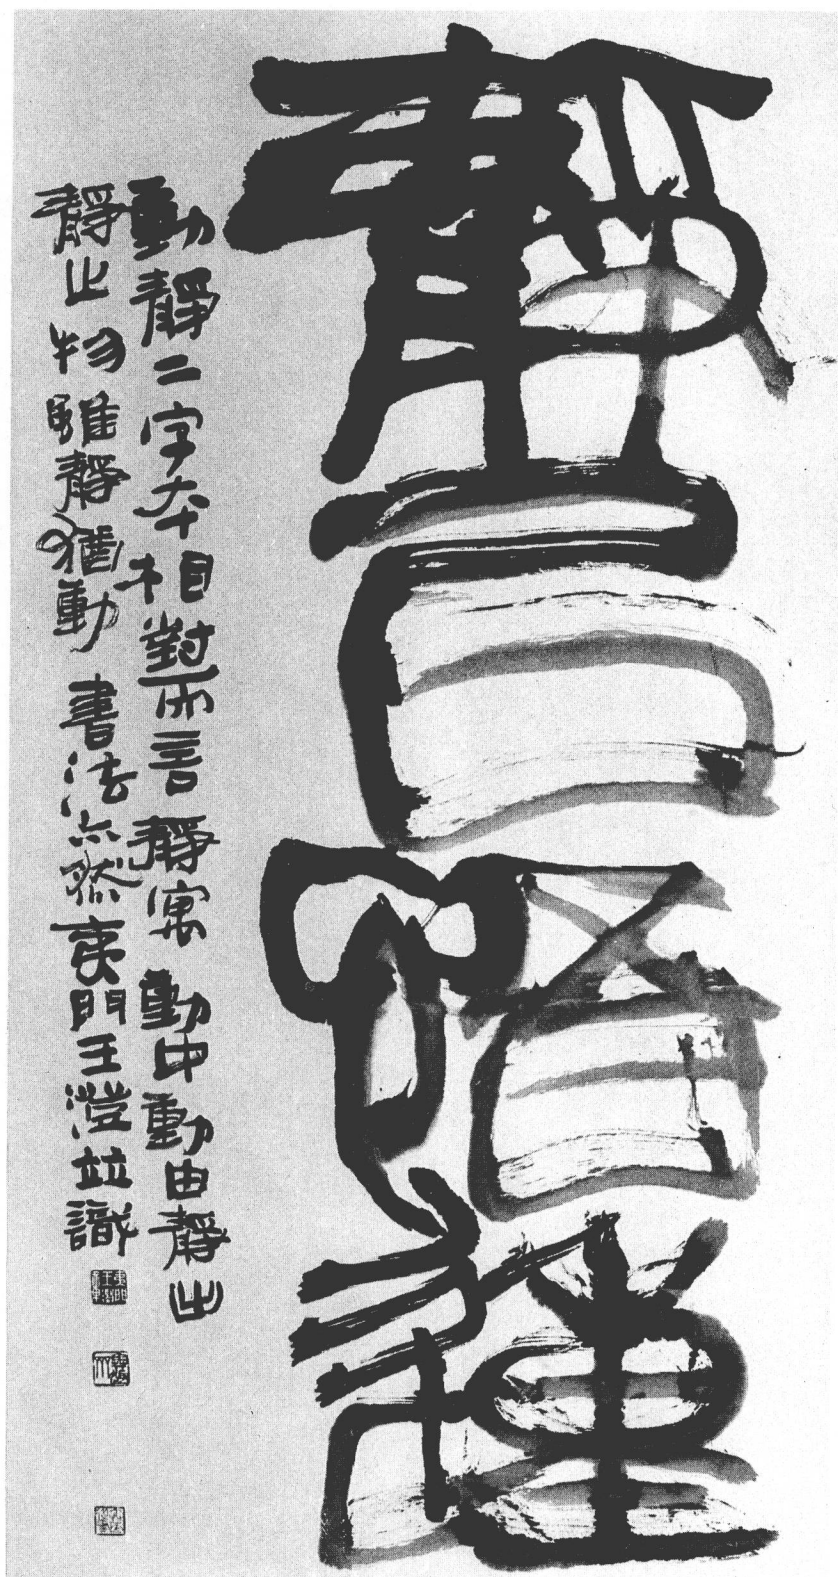 靜㠯
動靜二字本相對而言靜寓動中動由靜出
靜止物雖靜猶動書法亦然夷門王澄竝識